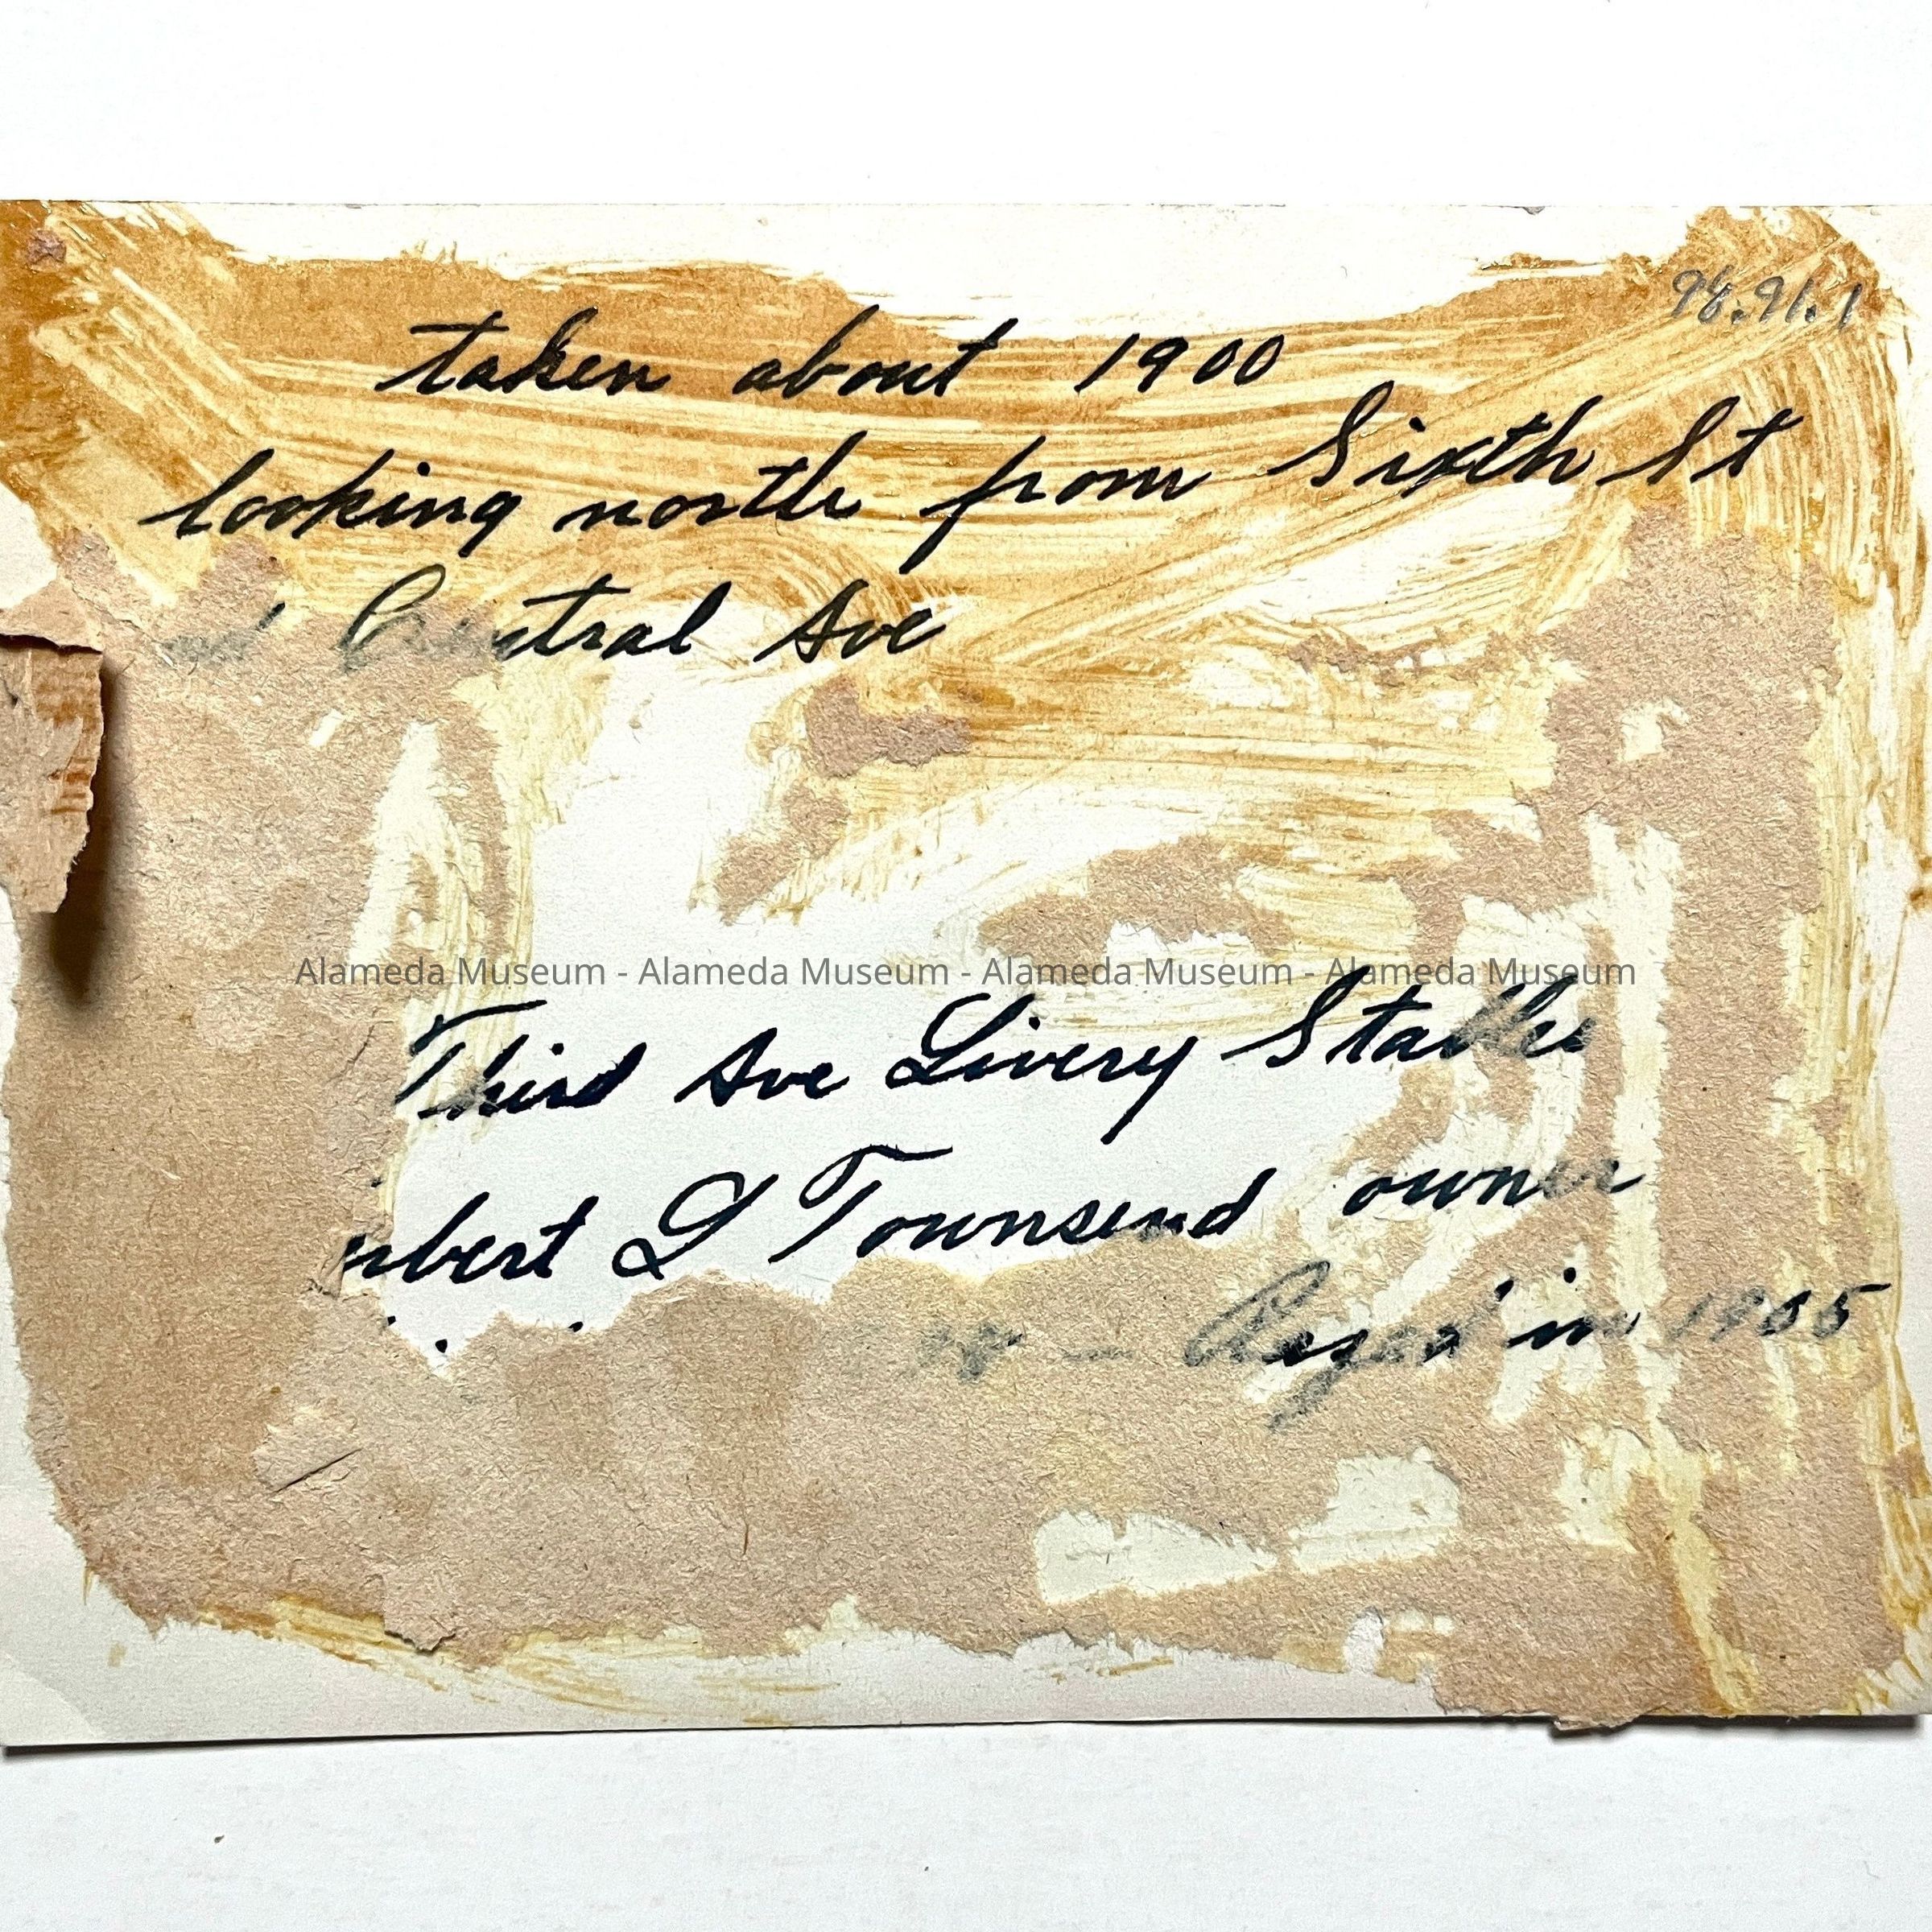 98.91.1
taken about 1900
looking north from Sixth St
Central Ave
Alameda Museum - Alameda Museum - Alameda Museum - Alameda Museum
Third Ave Livery Stable
D Townsend owner
Razed in 1905